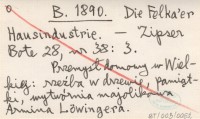 B. 1890. Die Folka'er
Hausindustrie. — Zipser
Bote 28, nr 38: 3.
Przemysł domowy w Wiel-
kiej: rzeźba w drzewie, pamiąt-
ki, wytwórnia majolikowa
Armina Löwingera.